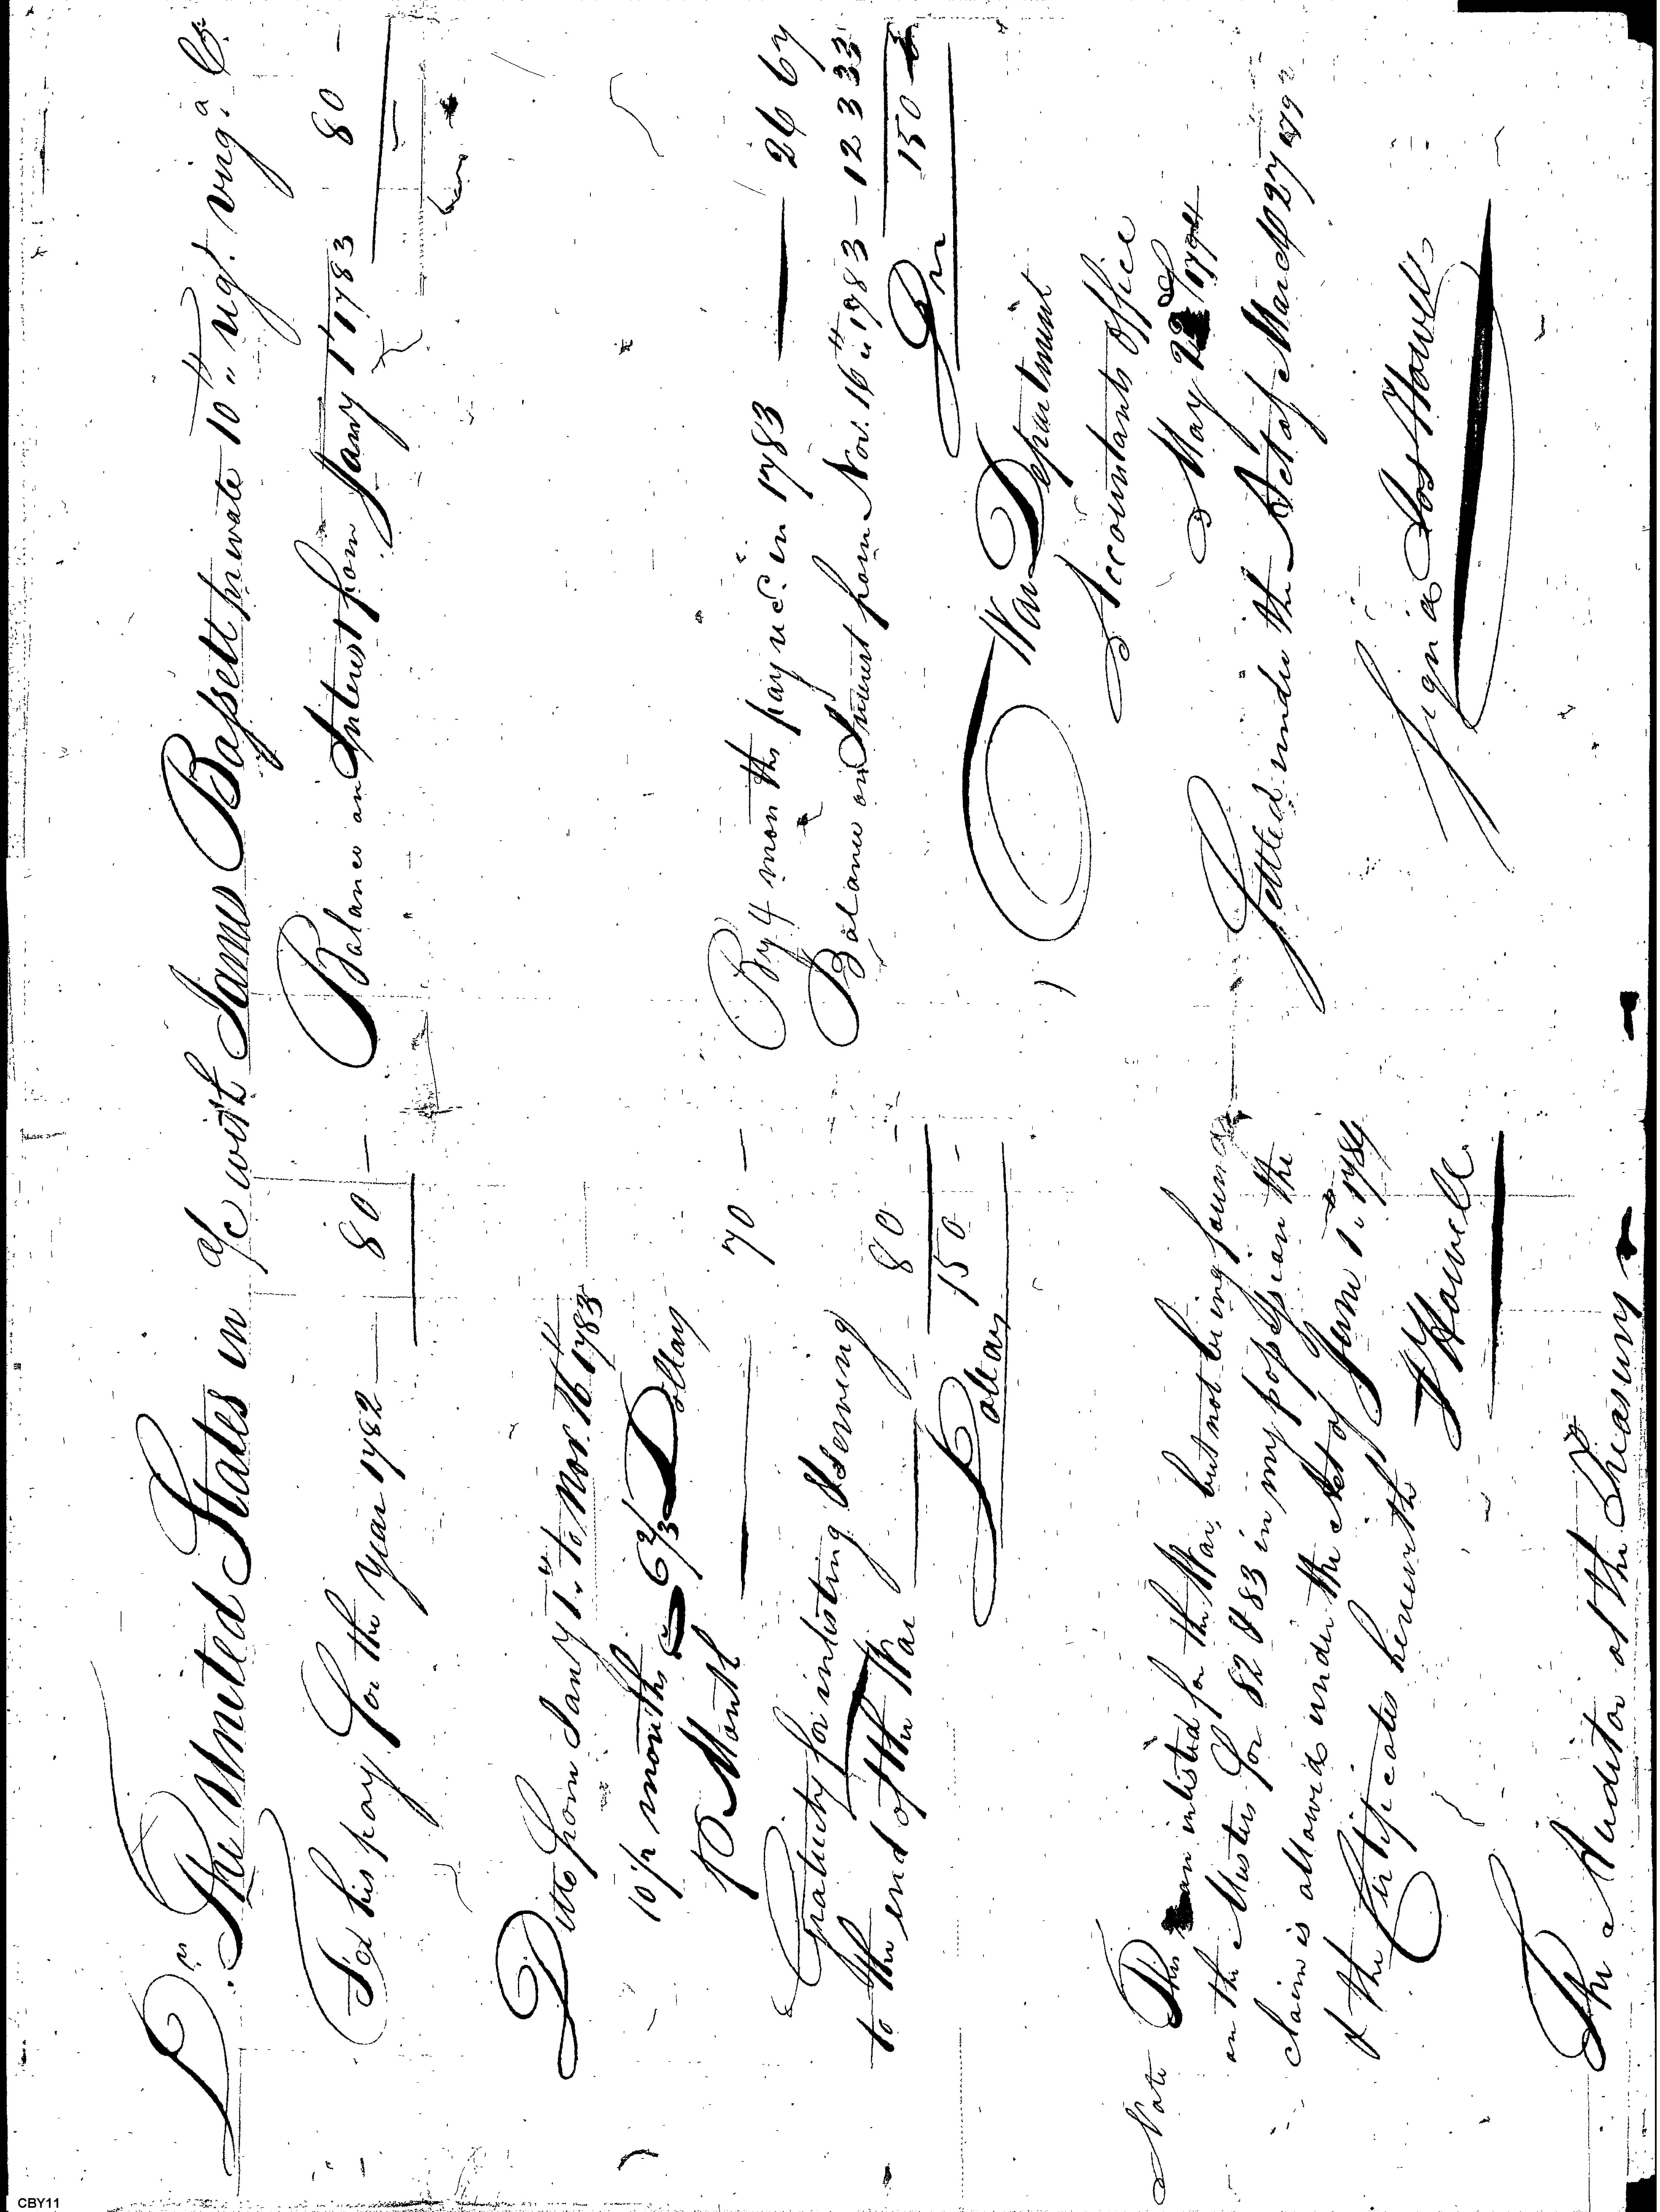 Dr. The United States in a/c with James Bassett private 10th regt. virga. Cr.
For his pay for the year 1782 — 80 —
Ditto from Jany 1st. to Nov. 16th 1783
10 1/2 months @ 6 2/3 Dollars
Month — 70 —
Gratuity for inlisting & serving
to the end of the War — 80 -
Dollars 150 -
Balance on Interest from Jany 1st 1783 80 -
By 4 months pay rec. in 1783 — 26 67
Balance on Interest from Nov. 16th 1783 — 123 33
150
War Department
Accountants Office
May 1794
Settled under the Act of March 27 1792
Signed Jos Howell
Note This man inlisted for the War, but not being found
on the Musters for 82 & 83 in my possession the
claim is allowed under the Act of June 1st. 1784
& the Certificates herewith
J Howell
The Auditor of the Treasury
CBY11